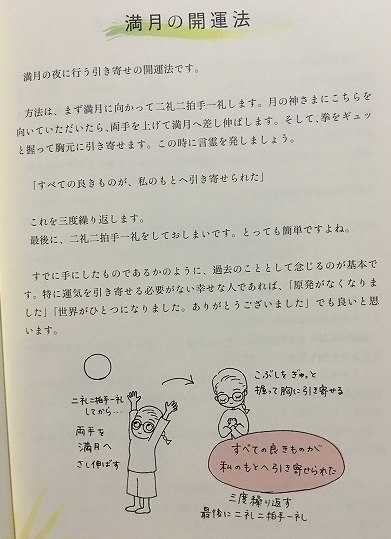 満月の開運法
満月の夜に行う引き寄せの開運法です。
方法は、まず満月に向かって二礼二拍手一礼します。月の神さまにこちらを
向いていただいたら、両手を上げて満月へ差し伸ばします。そして、拳をギュッ
と握って胸元に引き寄せます。この時に言霊を発しましょう。
「すべての良きものが、私のもとへ引き寄せられた」
これを三度繰り返します。
最後に、二礼二拍手一礼をしておしまいです。とっても簡単ですよね。
すでに手にしたものであるかのように、過去のこととして念じるのが基本で
す。特に運気を引き寄せる必要がない幸せな人であれば、「原発がなくなりま
した」「世界がひとつになりました。ありがとうございました」でも良いと思
います。
二礼二拍手一礼
してから…
両手を
満月へ
さし伸ばす
こぶしをぎゅっと
握って胸に引き寄せる
すべての良きものが
私のもとへ引き寄せられた
三度繰り返す
最後に二礼二拍手一礼